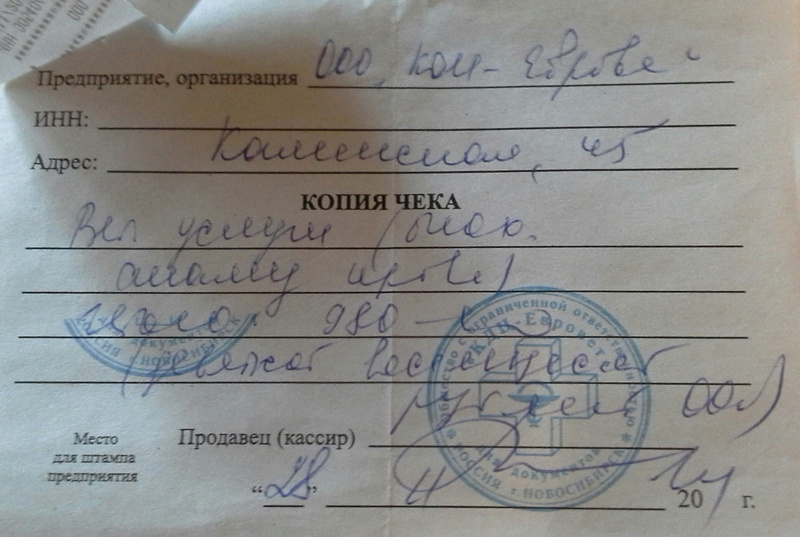 Предприятие, организация ООО „КДЦ-Евровет"
ИНН:
Адрес: Каменская, 45
КОПИЯ ЧЕКА
Вет услуги (биох.
анализ крови)
980-
(девятьсот восемьдесят
рублей 00к)
Общество с ограниченной ответственностью
"КДЦ-Евровет"
для документов
* РОССИЯ г.НОВОСИБИРСК *
Продавец (кассир)
Место
для штампа
предприятия
“28” 11 2014 г.